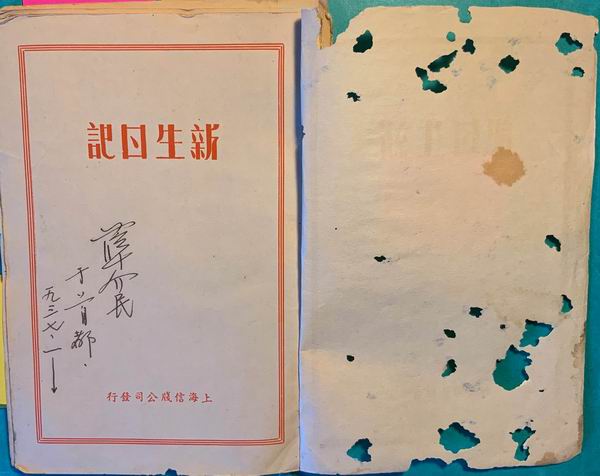 新生日記
介民
于首都.
九三七.一
上海信牋公司發行